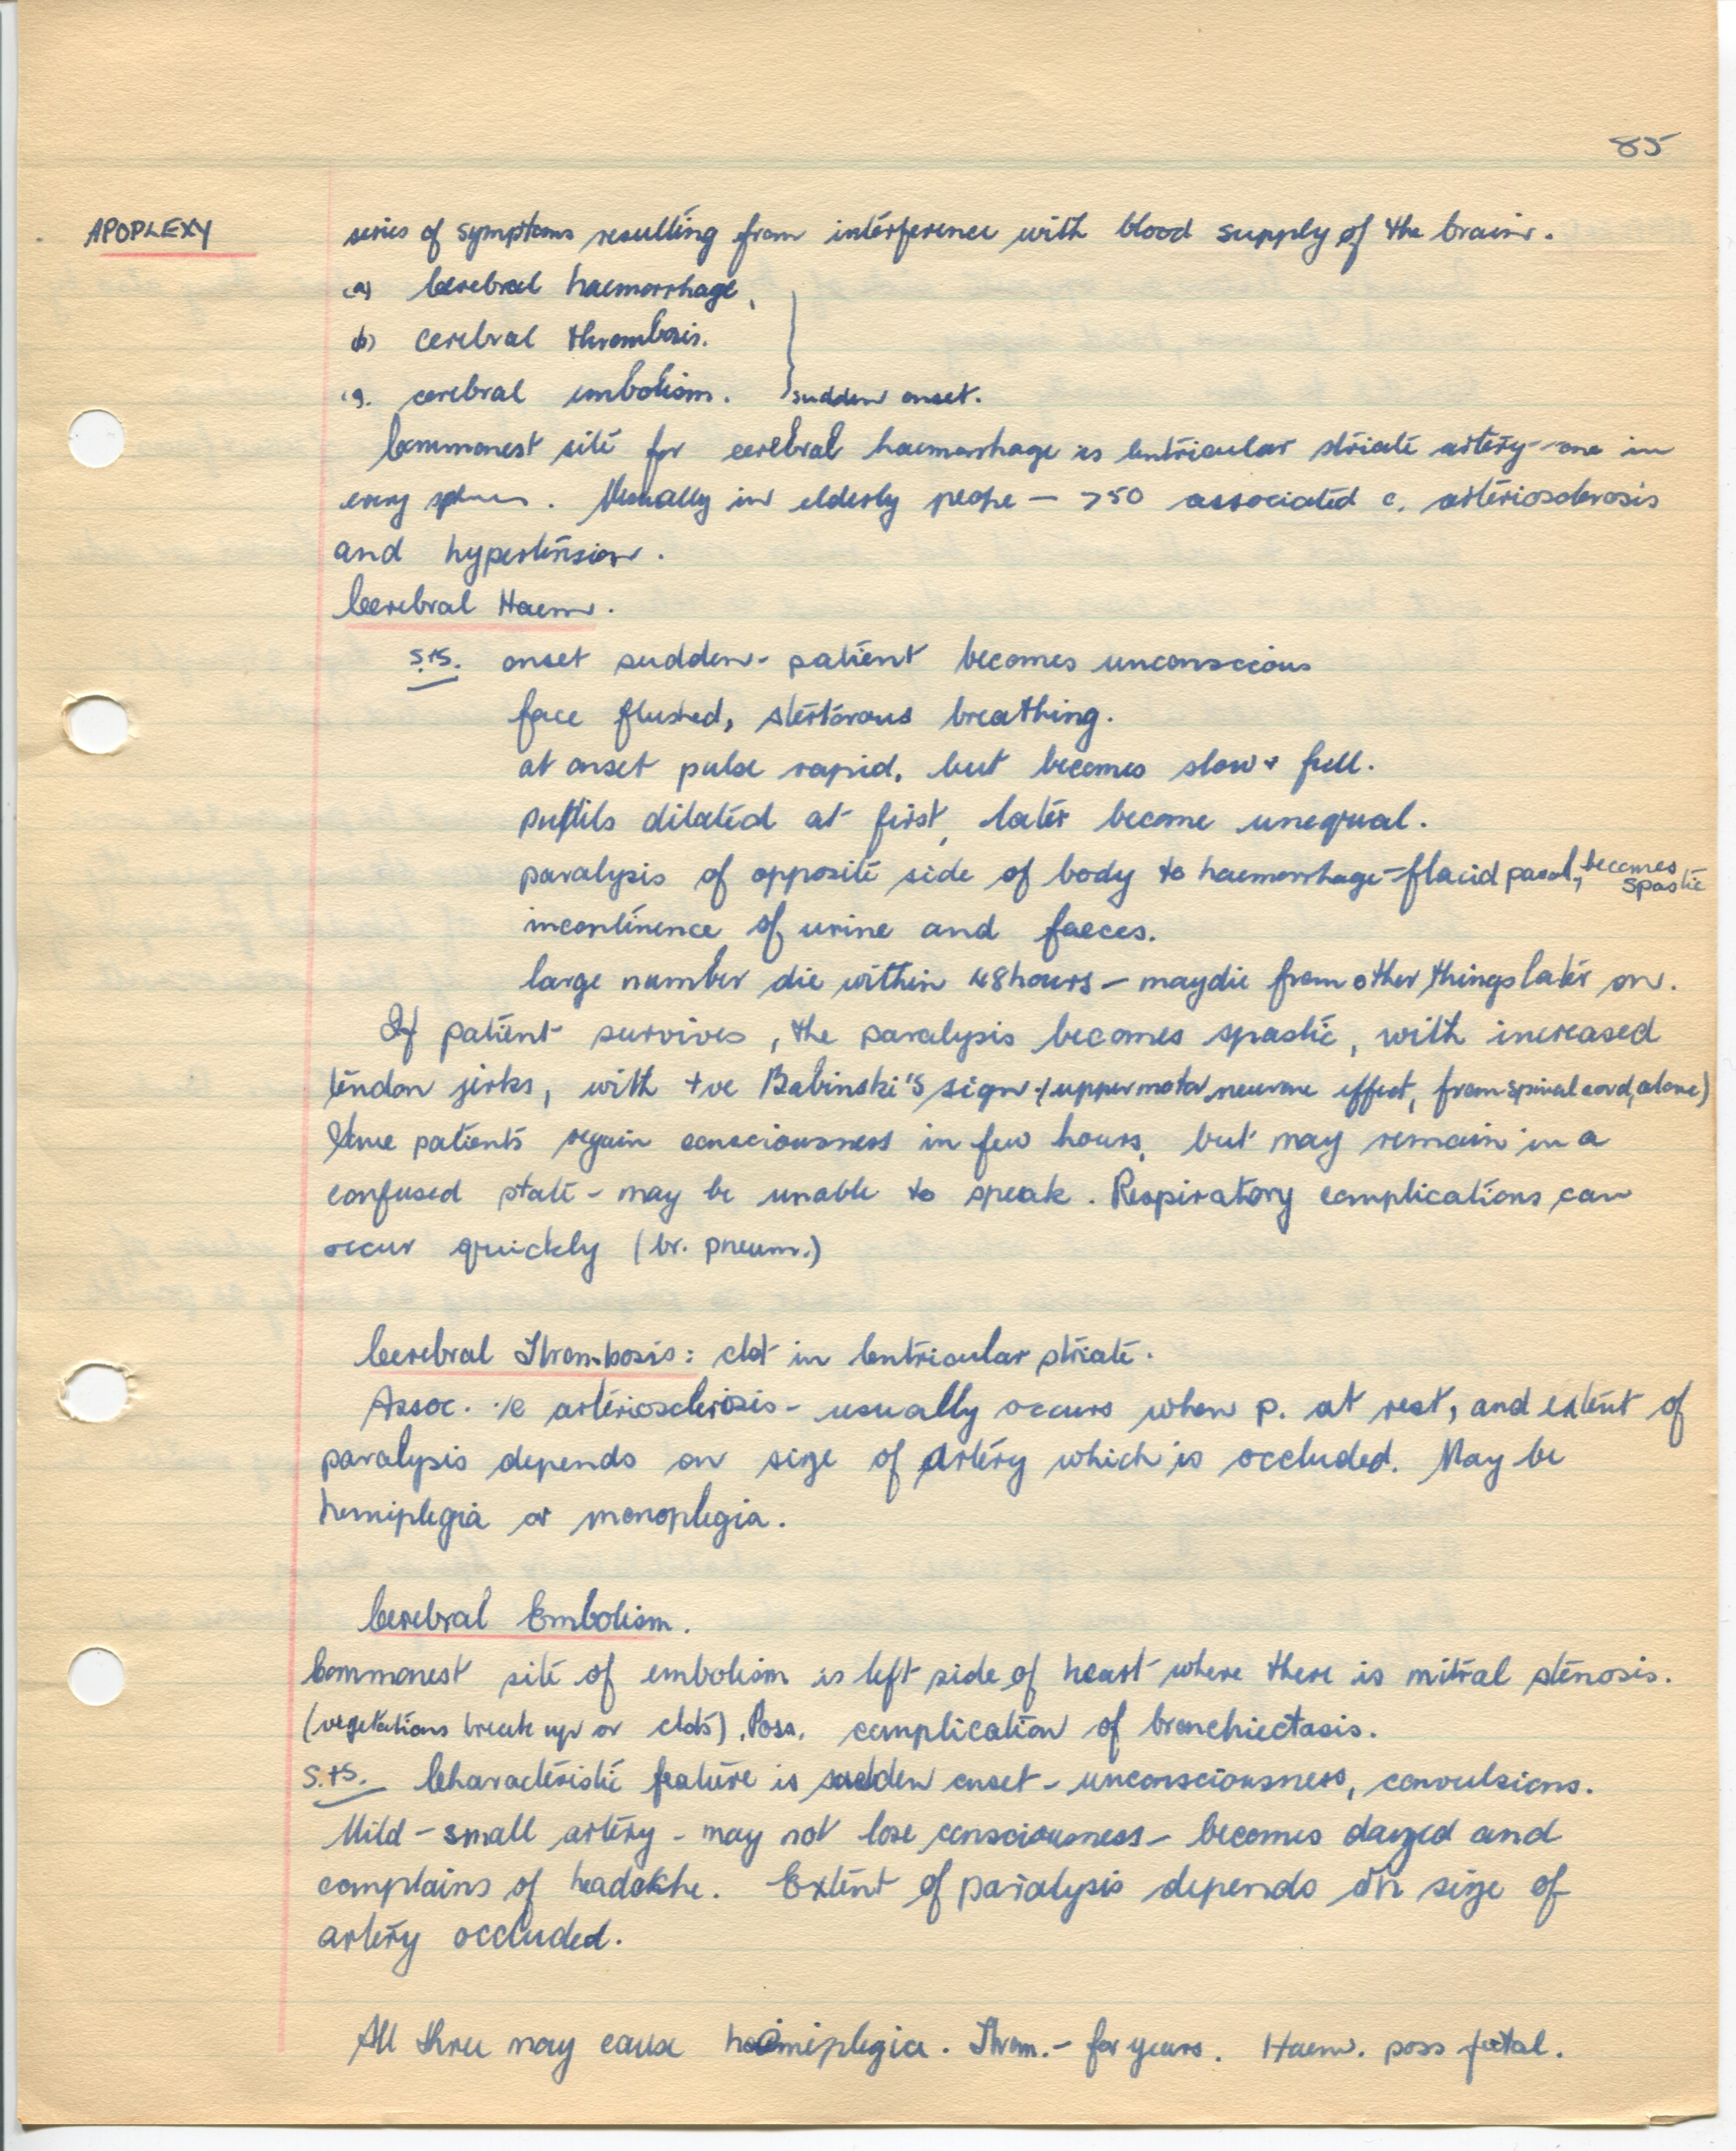 85
APOPLEXY series of symptoms resulting from interference with blood supply of the brain.
(a) Cerebral haemorrhage,
(b) cerebral thrombosis.
(c). cerebral embolism. } sudden onset.
Commonest site for cerebral haemorrhage is lentricular striate artery - one in
every . Usually in elderly people - >50 associated c. arteriosclerosis
and hypertension.
Cerebral Haem.
S.+S. onset sudden - patient becomes unconscious
face flushed, stertorous breathing.
at onset pulse rapid, but becomes slow + full.
pupils dilated at first, later become unequal.
paralysis of opposite side of body to haemorrhage - flacid paral, becomes spastic
incontinence of urine and faeces.
large number die within 48 hours - may die from other things later on.
If patient survives, the paralysis becomes spastic, with increased
tendon jerks, with +ve Babinski's sign (upper motor neurone effect, from spinal cord, alone)
Some patients regain consciousness in few hours, but may remain in a
confused state - may be unable to speak. Respiratory complications can
occur quickly (br. pneum.)
Cerebral Thrombosis: clot in lentricular striate.
Assoc. c arteriosclerosis - usually occurs when p. at rest, and extent of
paralysis depends on size of artery which is occluded. May be
hemiplegia or monoplegia.
Cerebral Embolism.
Commonest site of embolism is left side of heart where there is mitral stenosis.
(vegetations break up or clots). Poss. complication of bronchiectasis.
S.+S. Characteristic feature is sudden onset - unconsciousness, convulsions.
Mild - small artery - may not lose consciousness - becomes dazed and
complains of headache. Extent of paralysis depends on size of
artery occluded.
All three may cause hemiplegia. Throm. - for years. Haem. poss fatal.